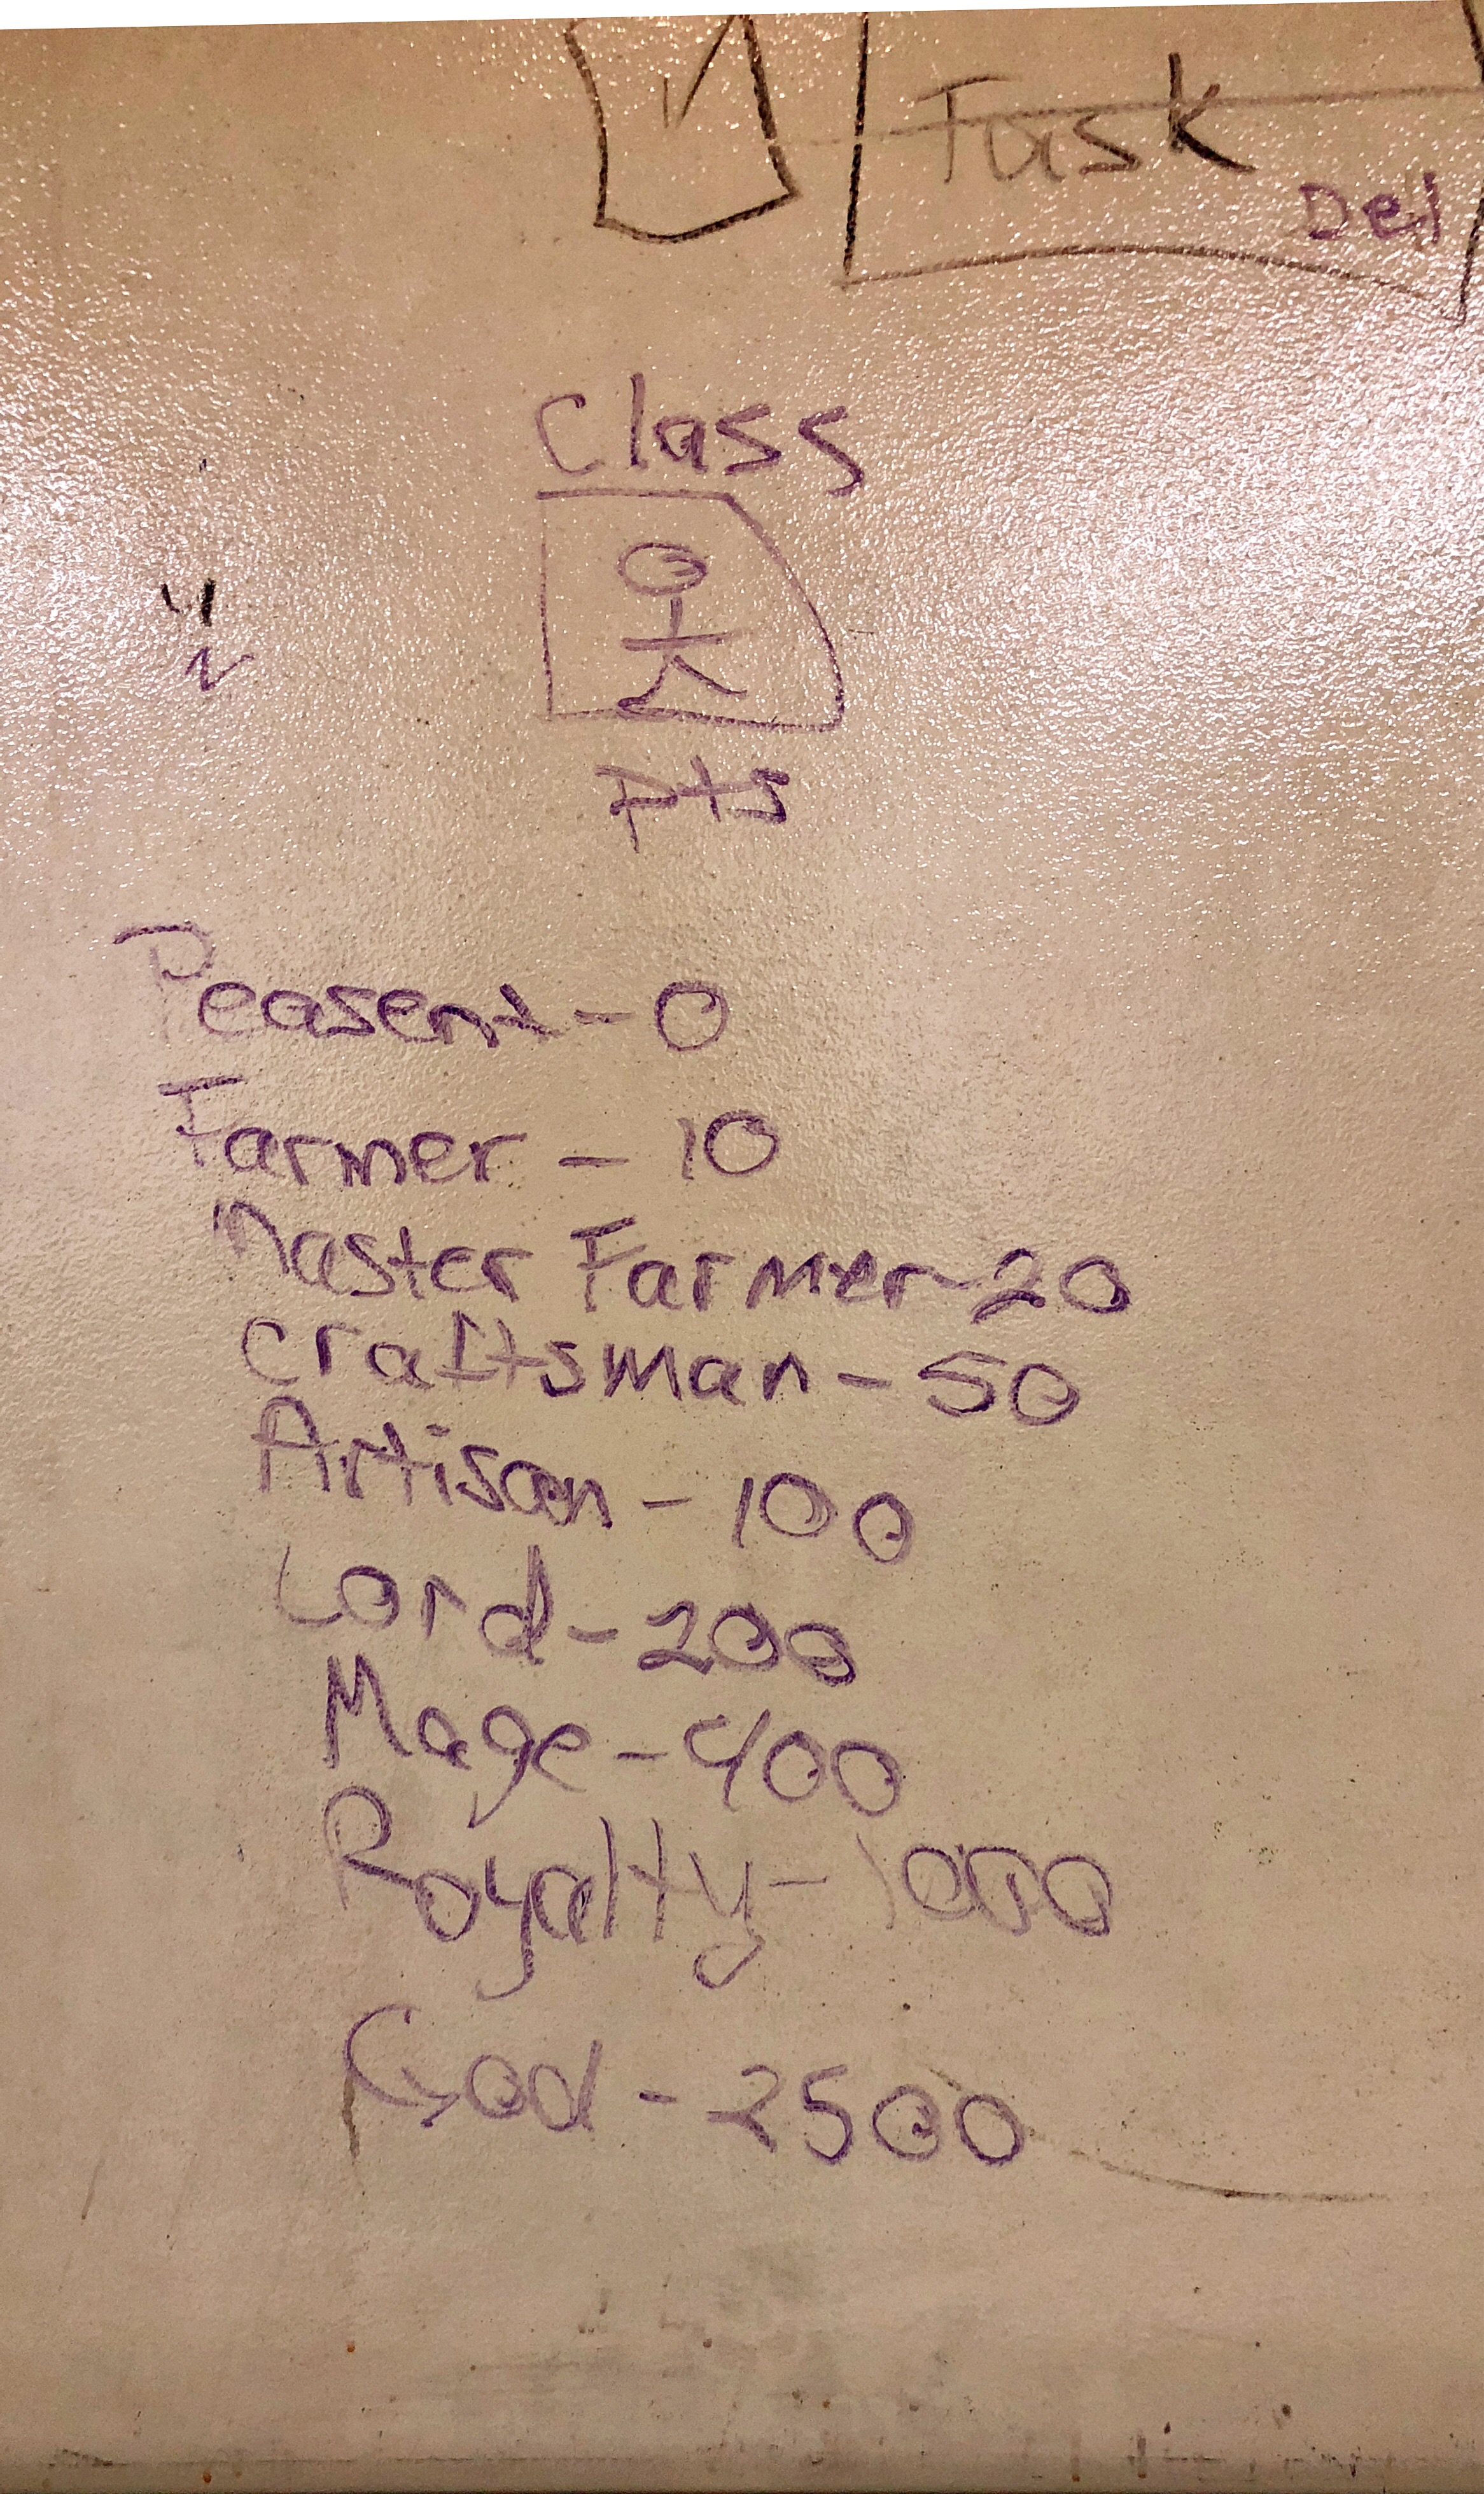 Task
Del
Class
pts
Peasent - 0
Farmer - 10
Master Farmer - 20
craftsman - 50
Artisan - 100
Lord - 200
Mage - 400
Royalty - 1000
God - 2500